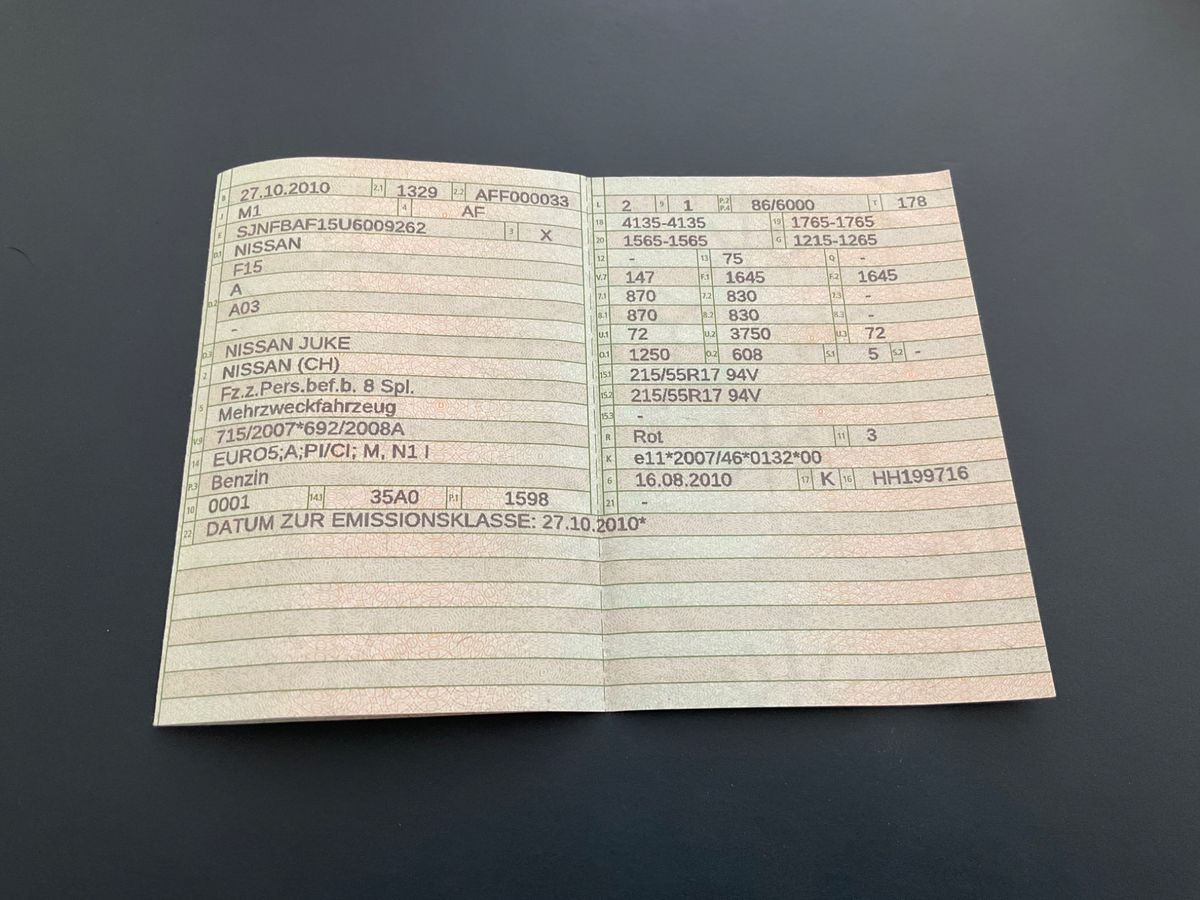 B 27.10.2010 2.1 1329 2.2 AFF000033
J M1 4 AF
E SJNFBAF15U6009262 3 X
D.1 NISSAN
F15
A
D.2 A03
-
D.3 NISSAN JUKE
2 NISSAN (CH)
Fz.z.Pers.bef.b. 8 Spl.
5 Mehrzweckfahrzeug
V.9 715/2007*692/2008A
14 EURO5;A;PI/CI; M, N1 I
P.3 Benzin
10 0001 14.1 35A0 P.1 1598
22 DATUM ZUR EMISSIONSKLASSE: 27.10.2010*
L 2 9 1 P.2 P.4 86/6000 T 178
18 4135-4135 19 1765-1765
20 1565-1565 G 1215-1265
12 - 13 75 Q -
V.7 147 F.1 1645 F.2 1645
7.1 870 7.2 830 7.3 -
8.1 870 8.2 830 8.3 -
U.1 72 U.2 3750 U.3 72
O.1 1250 O.2 608 S.1 5 S.2 -
15.1 215/55R17 94V
15.2 215/55R17 94V
15.3 -
R Rot 11 3
K e11*2007/46*0132*00
6 16.08.2010 17 K 16 HH199716
21 -